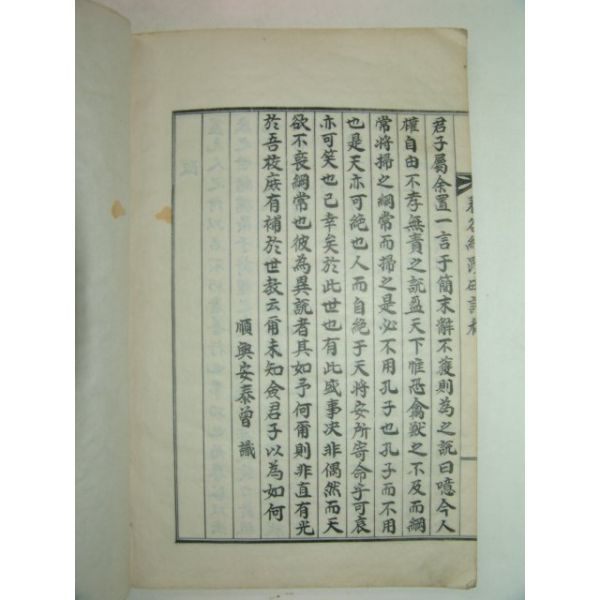 君子屬余置一言于簡末辭不獲則為之說曰噫今人
權自由不孝無責之說盈天下惟恐禽獸之不及而綱
常將掃之綱常而掃之是必不用孔子也孔子而不用
也是天亦可絶也人而自絶于天將安所寄命乎可哀
亦可笑也已幸矣於此世也有此盛事决非偶然而天
欲不喪綱常也彼為異說者其如予何爾則非直有光
於吾校庭有補於世教云爾未知僉君子以為如何
順興安泰曾識